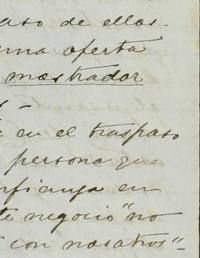 aso de ellos.
una oferta
mostrador
-
e en el traspaso
persona que
onfianza en
te negocio "no
con nosotros"-